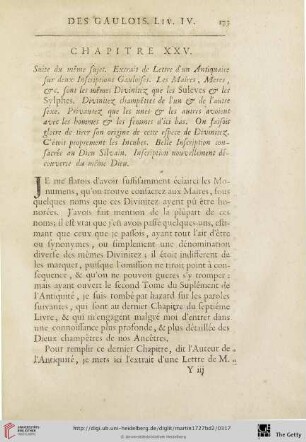 DES GAULOIS. Liv. IV. 173
CHAPITRE XXV.
Suite du même sujet. Extrait de Lettre d'un Antiquaire
sur deux Inscriptions Gauloises. Les Maires, Meres,
&c. sont les mêmes Divinitez que les Suléves & les
Sylphes. Divinitez champêtres de l'un & de l'autre
sexe. Privautez que les unes & les autres avoient
avec les hommes & les femmes d'ici bas. On faisoit
gloire de tirer son origine de cette espece de Divinitez.
C'étoit proprement les Incubes. Belle Inscription con-
sacrée au Dieu Silvain. Inscription nouvellement dé-
couverte du même Dieu.
JE me flattois d'avoir suffisamment éclairci les Mo-
numens, qu'on trouve consacrez aux Maires, sous
quelques noms que ces Divinitez ayent pû être ho-
norées. J'avois fait mention de la plûpart de ces
noms; il est vrai que j'en avois passé quelques-uns, esti-
mant que ceux que je passois, ayant tout l'air d'être
ou synonymes, ou simplement une dénomination
diverse des mêmes Divinitez; il étoit indifferent de
les marquer, puisque l'omission ne tiroit point à con-
séquence, & qu'on ne pouvoit gueres s'y tromper:
mais ayant ouvert le second Tome du Suplément de
l'Antiquité, je suis tombé par hazard sur les paroles
suivantes, qui sont au dernier Chapitre du septiéme
Livre, & qui m'engagent malgré moi d'entrer dans
une connoissance plus profonde, & plus détaillée des
Dieux champêtres de nos Ancêtres.
Pour remplir ce dernier Chapitre, dit l'Auteur de
l'Antiquité, je mets ici l'extrait d'une Lettre de M.
Y iij
http://digi.ub.uni-heidelberg.de/diglit/martin1727bd2/0317
© Universitätsbibliothek Heidelberg
UNIVERSITÄTS-
BIBLIOTHEK
HEIDELBERG
The Getty